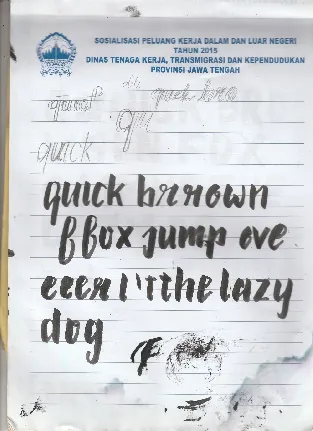 SOSIALISASI PELUANG KERJA DALAM DAN LUAR NEGERI
TAHUN 2015
DINAS TENAGA KERJA, TRANSMIGRASI DAN KEPENDUDUKAN
PROVINSI JAWA TENGAH
quick
quick brrrown
ffox jump ove
eeer the lazy
dog